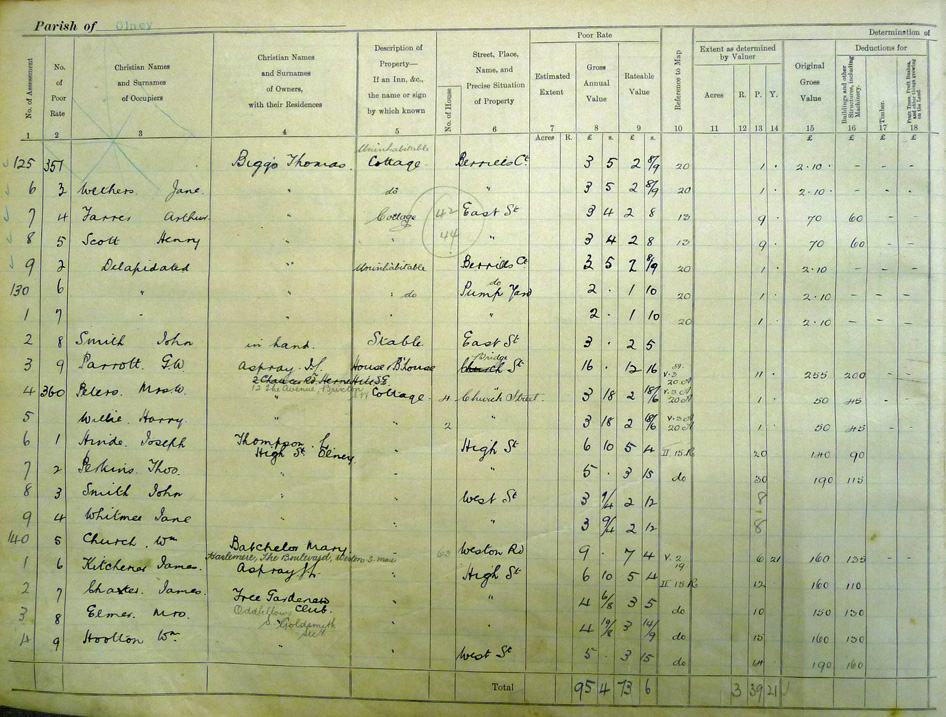 Parish of Olney
Determination of
Poor Rate
No. of Assessment
No. of Poor Rate
Christian Names and Surnames of Occupiers
Christian Names and Surnames of Owners, with their Residences
Description of Property— If an Inn, &c., the name or sign by which known
No. of House
Street, Place, Name, and Precise Situation of Property
Estimated Extent
Gross Annual Value
Rateable Value
Reference to Map
Extent as determined by Valuer
Acres R. P. Y.
Original Gross Value
Deductions for
Buildings and other Structures, including Machinery.
Timber.
Fruit Trees, Fruit Bushes, and other things growing on the Land.
1 2 3 4 5 6 7 8 9 10 11 12 13 14 15 16 17 18
Acres R. £ s. £ s. £ £ £ £
125 351 Biggs Thomas Uninhabitable Cottage Berrills Ct 3 5 2 8/9 20 1 · 2·10 - - -
6 3 Wethers Jane " do " 3 5 2 8/9 20 1 · 2·10 - - -
7 4 Farrer Arthur " Cottage 42 East St 3 4 2 8 13 9 · 70 60 - -
8 5 Scott Henry " " 44 " 3 4 2 8 13 9 · 70 60 - -
9 2 Delapidated " Uninhabitable Berrills Ct 3 5 2 8/9 20 1 · 2·10 - - -
130 6 " " do do Pump Yard 2 · 1 10 20 1 · 2·10 - - -
1 7 " " " 2 · 1 10 20 1 · 2·10 - - -
2 8 Smith John in hand Stable East St 3 · 2 5
3 9 Parrott. G.W. Aspray House B'house Church Bridge St 16 · 12 16 11 · 255 200
2 Chaucer Rd Herne Hill SE
4 360 Peters. Mrs. W. " Cottage 4 Church Street 3 18 2 18/6 1 · 50 45
5 Willie. Harry " " 2 3 18 2 18/6 1 · 50 45
6 1 Hinde. Joseph Thompson. L High St 6 10 5 4 II 15. 20 140 90
High St Olney
7 2 Perkins. Thos. " " 5 · 3 15 do 30 190 115
8 3 Smith John " West St 3 9/4 2 12 8
9 4 Whitmee Jane " " 3 9/4 2 12 8
140 5 Church. Wm Batchelor Mary Weston Rd 9 · 7 4 V. 2 19 6 21 160 135
Haslemere, The Boulevard, Weston S. mare
1 6 Kitchener James. Aspray High St 6 10 5 4 II 15. 12 160 110
2 7 Chaxter. James. Free Gardeners Club. " 4 6/8 3 5 do 10 150 130
3 8 Elmer. Mrs. Oddfellows Goldsmith " 4 19/8 3 14/9 do 15 160 130
4 9 Hootton Wm " West St 5 · 3 15 do 190 160
Total 95 4 73 6 3 39 21